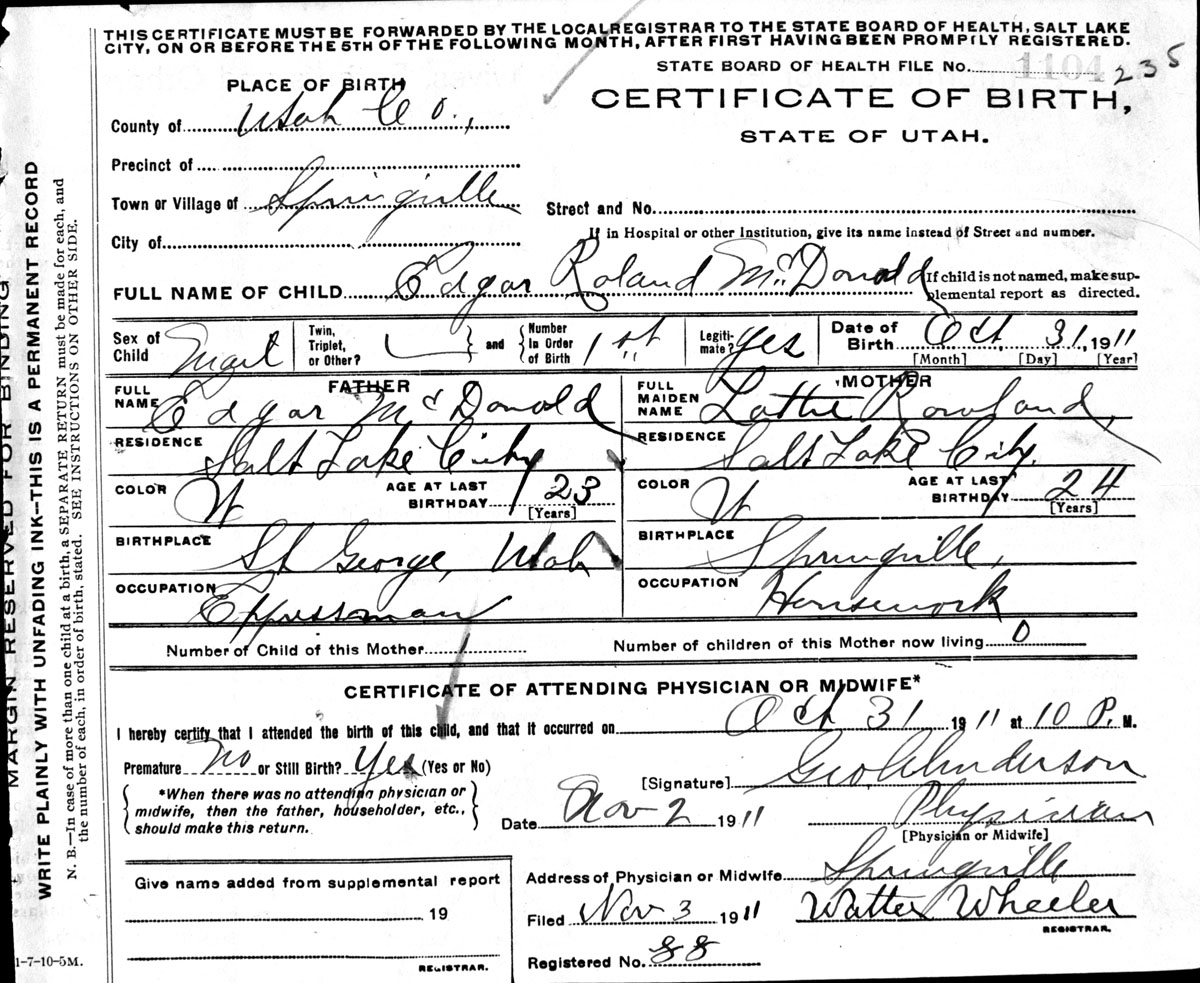 THIS CERTIFICATE MUST BE FORWARDED BY THE LOCAL REGISTRAR TO THE STATE BOARD OF HEALTH, SALT LAKE
CITY, ON OR BEFORE THE 5TH OF THE FOLLOWING MONTH, AFTER FIRST HAVING BEEN PROMPTLY REGISTERED.
STATE BOARD OF HEALTH FILE No. 1104 235
PLACE OF BIRTH
CERTIFICATE OF BIRTH,
STATE OF UTAH.
County of Utah Co.,
Precinct of
Town or Village of Springville
Street and No.
City of
If in Hospital or other Institution, give its name instead of Street and number.
FULL NAME OF CHILD Edgar Roland McDonald
If child is not named, make sup-
plemental report as directed.
Sex of Child
Twin, Triplet, or Other? and Number In Order of Birth 1st
Legiti-mate? Yes
Date of Birth Oct. 31, 1911
[Month] [Day] [Year]
FATHER
FULL NAME Edgar McDonald
RESIDENCE Salt Lake City
COLOR W AGE AT LAST BIRTHDAY 23
[Years]
BIRTHPLACE St George, Utah
OCCUPATION Expressman
MOTHER
FULL MAIDEN NAME Lottie Rowland,
RESIDENCE Salt Lake City.
COLOR W AGE AT LAST BIRTHDAY 24
[Years]
BIRTHPLACE Springville,
OCCUPATION Housework
Number of Child of this Mother 1 Number of children of this Mother now living 0
CERTIFICATE OF ATTENDING PHYSICIAN OR MIDWIFE*
I hereby certify that I attended the birth of this child, and that it occurred on Oct 31 1911 at 10 P. M.
Premature No or Still Birth? Yes (Yes or No)
[Signature] Geo Anderson
*When there was no attending physician or
midwife, then the father, householder, etc.,
should make this return.
Date Nov 2 1911 Physician
[Physician or Midwife]
Give name added from supplemental report
19
REGISTRAR.
Address of Physician or Midwife Springville
Filed Nov 3 1911 Walter Wheeler
REGISTRAR.
Registered No. 88
1-7-10-5M.
MARGIN RESERVED FOR BINDING
WRITE PLAINLY WITH UNFADING INK—THIS IS A PERMANENT RECORD
N. B.—In case of more than one child at a birth, a SEPARATE RETURN must be made for each, and
the number of each, in order of birth, stated. SEE INSTRUCTIONS ON OTHER SIDE.